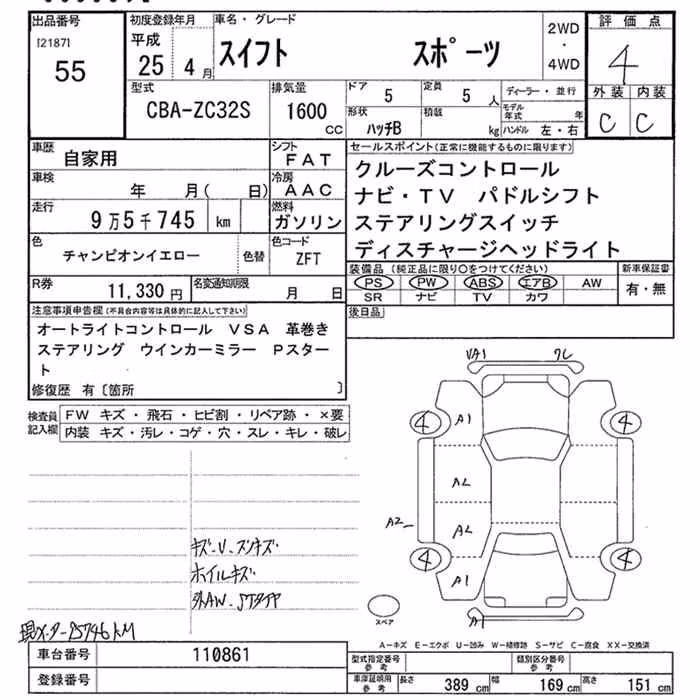 出品番号
[2187]
55
初度登録年月
平成
25年 4月
車名・グレード
スイフト スポーツ
2WD
・
4WD
評価点
4
外装 内装
C C
型式
CBA-ZC32S
排気量
1600
CC
ドア
5
定員
5 人
形状
ハッチB
積載
kg
ディーラー・並行
モデル年式 年
ハンドル 左・右
車歴
自家用
シフト
FAT
車検
年 月( 日)
冷房
AAC
走行
9万5千745 km
燃料
ガソリン
色
チャンピオンイエロー
色替
色コード
ZFT
R券
11,330円
名変通知期限
月 日
セールスポイント(正常に機能するものに限ります)
クルーズコントロール
ナビ・TV パドルシフト
ステアリングスイッチ
ディスチャージヘッドライト
装備品(純正品に限り○をつけてください)
PS PW ABS エアB AW
SR ナビ TV カワ
新車保証書
有・無
後日品
注意事項申告欄(不具合内容等は具体的に記入して下さい)
オートライトコントロール VSA 革巻き
ステアリング ウインカーミラー Pスター
ト
修復歴 有〔箇所 〕
検査員記入欄
FW キズ・飛石・ヒビ割・リペア跡・×要
内装 キズ・汚レ・コゲ・穴・スレ・キレ・破レ
キズ・U・スリキズ・
ホイルキズ
現メーター95746KM
4 A1 4
A2
A2 A2
4 A1 4
A1
スペア
A-キズ E-エクボ U-凹み W-補修跡 S-サビ C-腐食 XX-交換済
車台番号
110861
登録番号
型式指定番号
参考
類別区分番号
参考
車庫証明用
参考
長さ 389 cm
幅 169 cm
高さ 151 cm